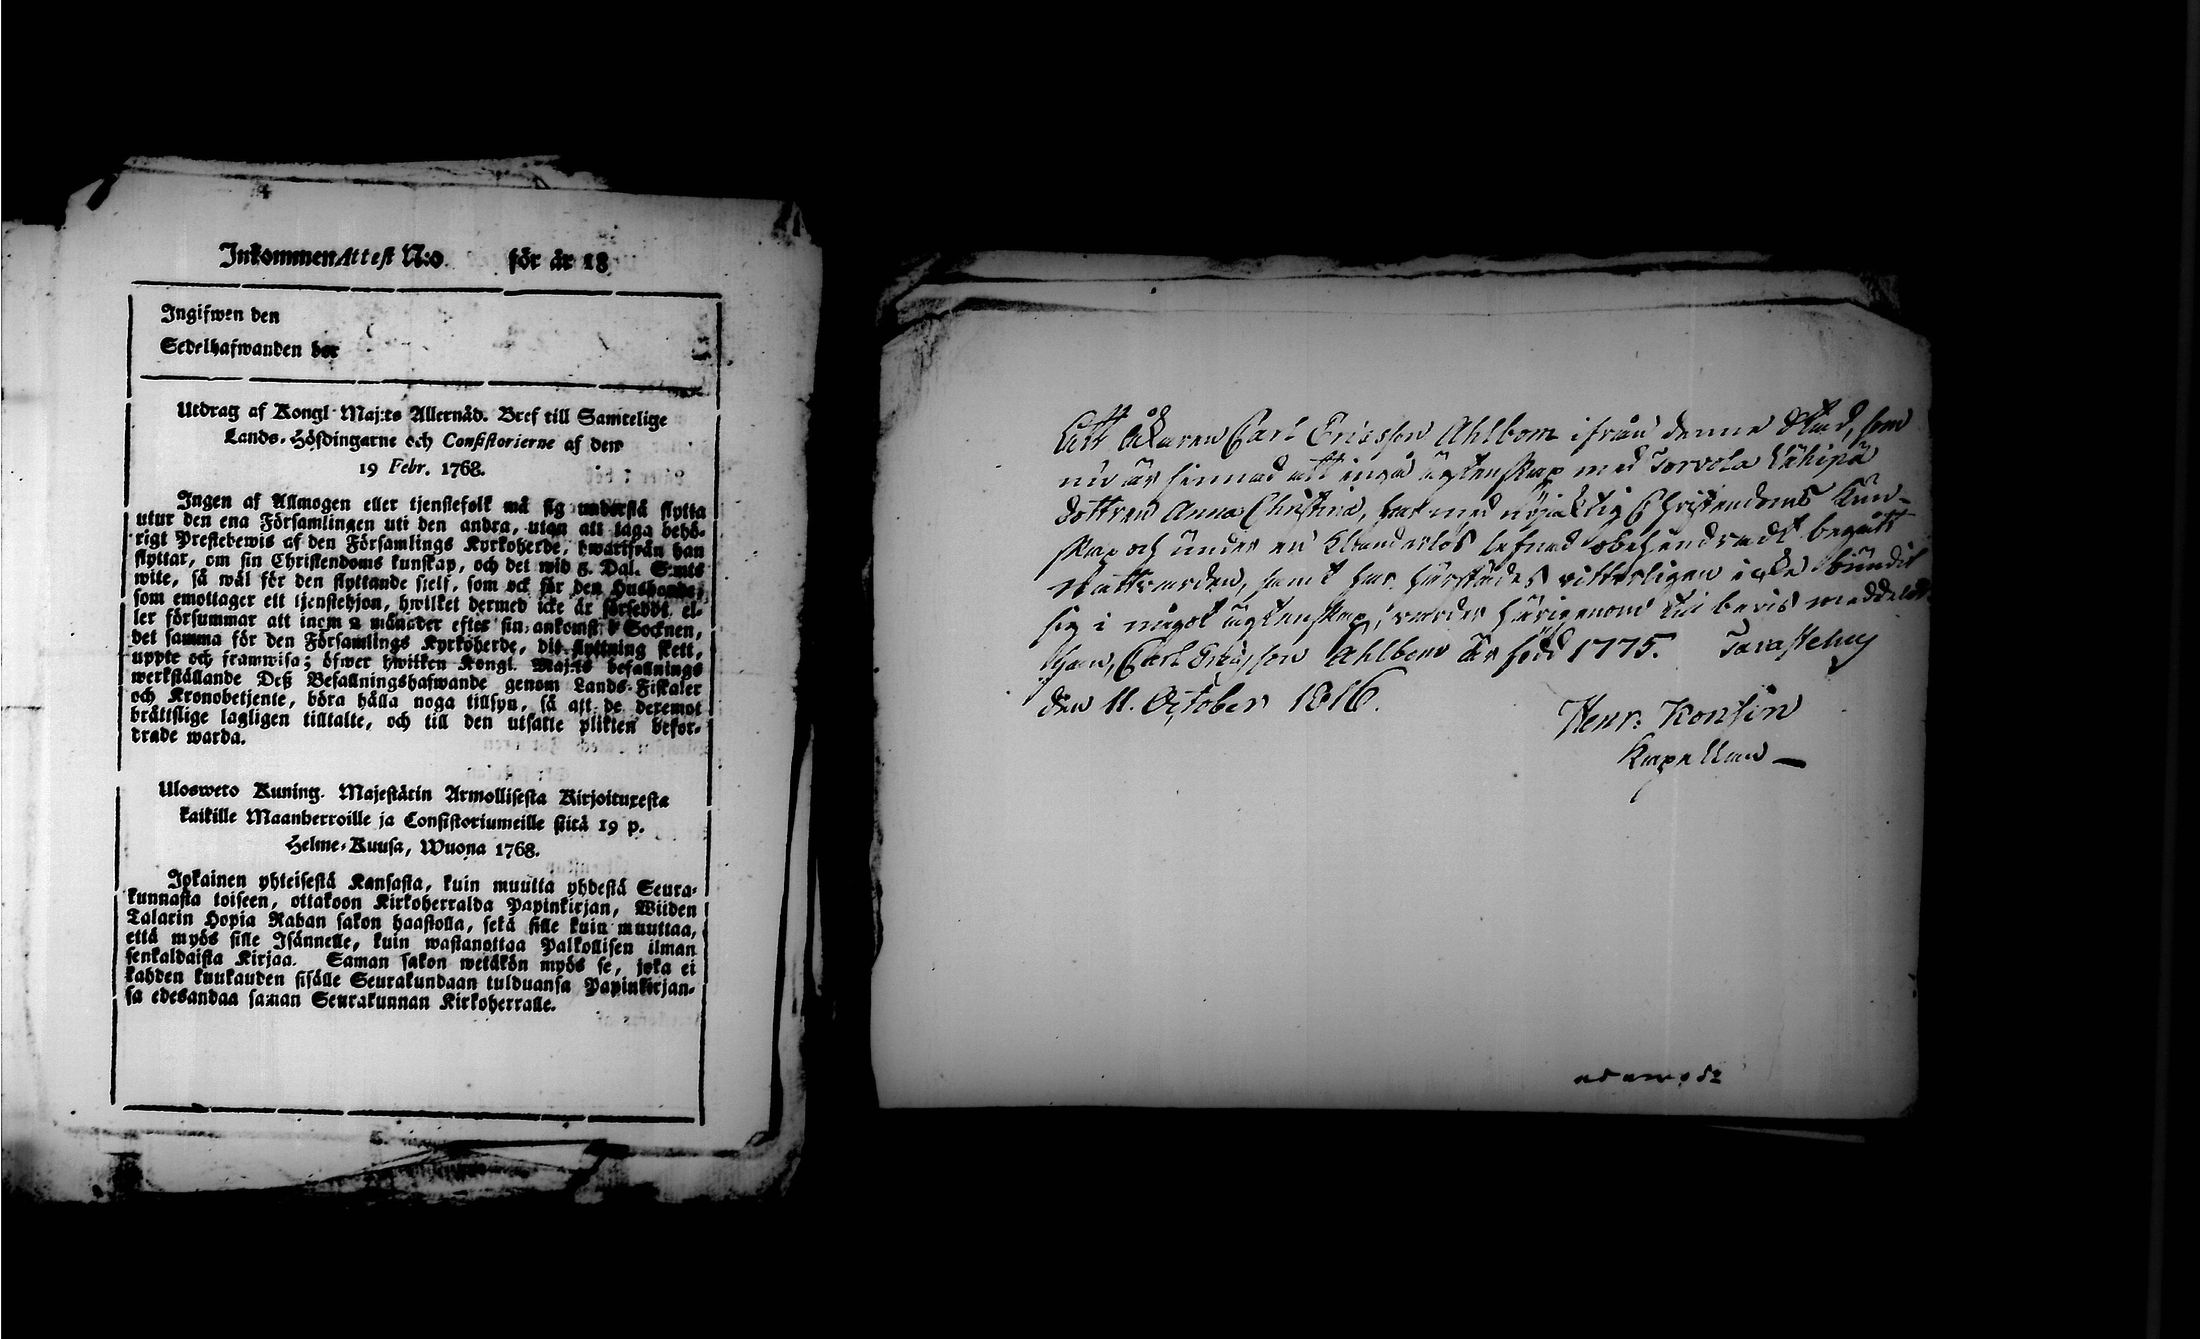 Inkommen Attest N:o för år 18
Ingifwen den
Sedelhafwanden bor
Utdrag af Kongl Maj:ts Allernåd. Bref till Samtelige
Lands-Höfdingarne och Consistorierne af den
19 Febr. 1768.
Ingen af Allmogen eller tjenstefolk må sig understå flytta
utur den ena Församlingen uti den andra, utan att taga behö-
rigt Prestebewis af den Församlings Kyrkoherde, hwartifrån han
flyttar, om sin Christendoms kunskap, och det wid 5. Dal. S:mts
wite, så wäl för den flyttande sielf, som ock för den Husbonde,
som emottager ett tjenstehjon, hwilket dermed icke är förseddt, el-
ler försummar att inom 2 månader efter sin ankomst i Socknen,
det samma för den Församlings Kyrkoherde, dit flyttning skett,
uppte och framwisa; öfwer hwilken Kongl. Maj:ts befallnings
werkställande Deß Befallningshafwande genom Lands-Fiskaler
och Kronobetjente, böra hålla noga tillsyn, så att de deremot
bråttslige lagligen tilltalte, och till den utsatte plikten befor-
drade warda.
Ulosweto Kuning. Majestätin Armollisesta Kirjoituxesta
kaikille Maanherroille ja Consistoriumeille siitä 19 p.
Helme-Kuusa, Wuona 1768.
Jokainen yhteisestä Kansasta, kuin muutta yhdestä Seura-
kunnasta toiseen, ottakoon Kirkoherralda Papinkirjan, Wiiden
Talarin Hopia Rahan sakon haastolla, sekä sille kuin muuttaa,
että myös sille Isännelle, kuin wastanottaa Palkollisen ilman
senkaldaista Kirjaa. Saman sakon wetäkön myös se, joka ei
kahden kuukauden sisälle Seurakundaan tulduansa Papinkirjan-
sa edesandaa saman Seurakunnan Kirkoherralle.
Att Åkaren Carl Ericsson Ahlbom ifrån denne Stad, som
nu är sinnad att ingå ägtenskap med Torvola Lähipä
dottren Anna Christina, har med nöjaktig Christendoms Kun-
skap och under en klanderlös lefnad obehindradt begått
Nattvarden, samt har härstädes vitterligen icke bundit
sig i något ägtenskap, varder härigenom till bevis meddeldt.
Han, Carl Ericsson Ahlbom är född 1775. Tavastehus
den 11. October 1816.
Henr. Konsin
Kapellan